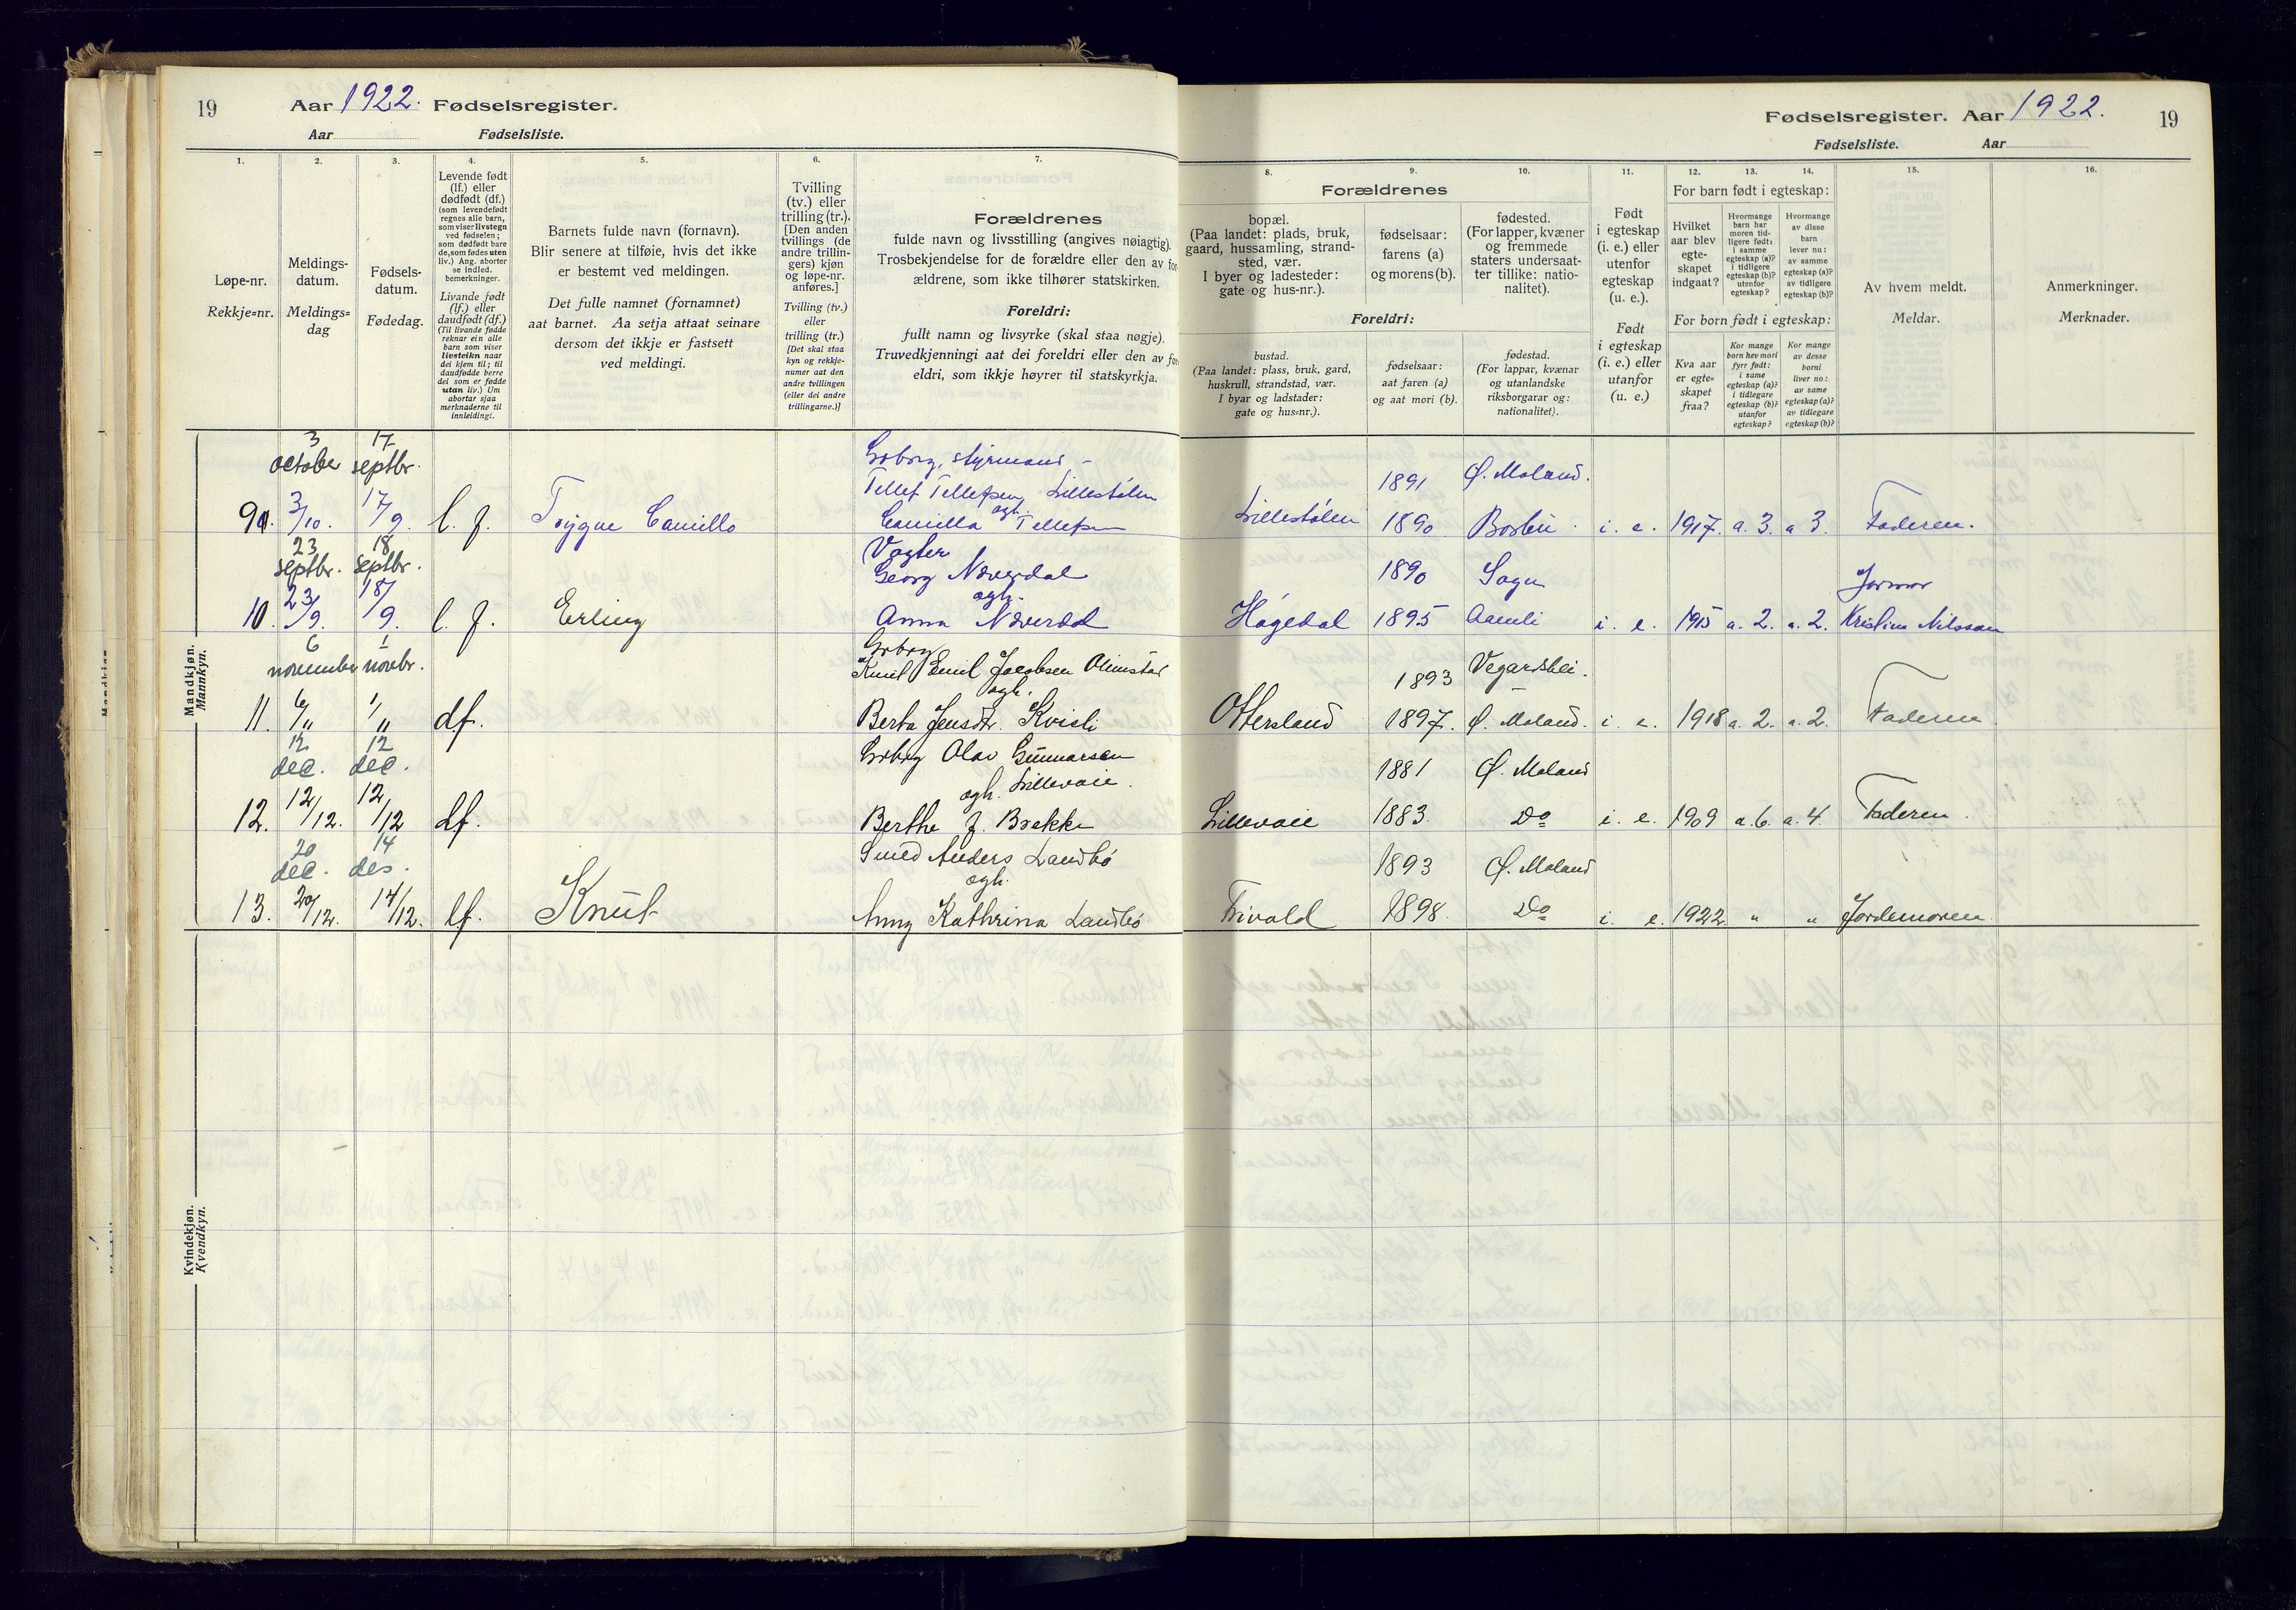 19 Aar 1922. Fødselsregister.
Aar Fødselsliste.
Fødselsregister. Aar 1922. 19
Fødselsliste. Aar
1. 2. 3. 4. 5. 6. 7. 8. 9. 10. 11. 12. 13. 14. 15. 16.
Løpe-nr.
Rekkje=nr.
Meldings-
datum.
Meldings=
dag
Fødsels-
datum.
Fødedag.
Levende født
(lf.) eller
dødfødt (df.)
(som levendefødt
regnes alle barn,
som viser livstegn
ved fødselen;
som dødfødt bare
de, som fødes uten
liv.) Ang. aborter
se indled.
bemerkninger.
Livande født
(lf.) eller
daudfødt (df.)
(Til livande fødde
reknar ein alle
barn som viser
livsteikn naar
dei kjem til; til
daudfødde berre
dei som er fødde
utan liv.) Um
abortar sjaa
merknaderne til
innleidingi.
Barnets fulde navn (fornavn).
Blir senere at tilføie, hvis det ikke
er bestemt ved meldingen.
Det fulle namnet (fornamnet)
aat barnet. Aa setja attaat seinare
dersom det ikkje er fastsett
ved meldingi.
Tvilling
(tv.) eller
trilling (tr.).
[Den anden
tvillings (de
andre trillin-
gers) kjøn
og løpe-nr.
anføres.]
Tvilling (tv.)
eller
trilling (tr.)
[Det skal staa
kyn og rekkje-
numer aat den
andre tvillingen
(eller dei andre
trillingarne.)]
Forældrenes
fulde navn og livsstilling (angives nøiagtig).
Trosbekjendelse for de forældre eller den av for
ældrene, som ikke tilhører statskirken.
Foreldri:
fullt namn og livsyrke (skal staa nøgje).
Truvedkjenningi aat dei foreldri eller den av for
eldri, som ikkje høyrer til statskyrkja.
Forældrenes
bopæl.
(Paa landet: plads, bruk,
gaard, hussamling, strand-
sted, vær.
I byer og ladesteder:
gate og hus-nr.).
fødselsaar:
farens (a)
og morens (b).
fødested.
(For lapper, kvæner
og fremmede
staters undersaat-
ter tillike: natio-
nalitet).
Foreldri:
bustad.
(Paa landet: plass, bruk, gard,
huskrull, strandstad, vær.
I byar og ladstader:
gate og hus=nr.).
fødselsaar:
aat faren (a)
og aat mori (b).
fødestad.
(For lappar, kvænar
og utanlandske
riksborgarar og:
nationalitet).
Født
i egteskap
(i. e.) eller
utenfor
egteskap
(u. e.).
Født
i egteskap
(i. e.) eller
utanfor
(u. e.)
For barn født i egteskap:
Hvilket
aar blev
egte-
skapet
indgaat?
Hvormange
barn har
moren tid-
ligere født:
i samme
egteskap (a)?
i tidligere
egteskap (b)?
utenfor
egteskap?
Hvormange
av disse
barn
lever nu:
av samme
egteskap (a)?
av tidligere
egteskap (b)?
For born født i egteskap:
Kva aar
er egte=
skapet
fraa?
Kor mange
born hev mori
fyrr født:
i same
egteskap (a)?
i tidlegare
egteskap (b)?
utanfor
egteskap?
Kor mange
av desse
borni
liver no:
av same
egteskap (a)?
av tidlegare
egteskap (b)?
Av hvem meldt.
Meldar.
Anmerkninger.
Merknader.
Mandkjøn.
Mannkyn.
3 17
october septbr.
Gbrbrg, styrmand -
Tellef Tellefsen Lillestølen 1891 Ø. Moland.
9. 3/10. 17/9. l. f. Trygve Camillo
ogh.
Camilla Tellefsen Lillestølen 1890 Bosbu i. e. 1917. a. 3. a 3. Faderen.
23 18
septbr. septbr.
Vogter
Georg Næverdal 1890 Sogn
ogh.
Jormor
10. 23/9. 18/9. l. f. Erling Anna Næverdal Hagedal 1895 Aamli i. e. 1915 a. 2. a. 2. Kristine Nilsson
6 1
november novbr.
Gbrbrg
Knut Emil Jacobsen Olimstad 1893 Vegardshei.
ogh.
11. 6/11 1/11 df. Berta Jensdtr. Kvisli Ottersland 1897. Ø. Moland. i. e. 1918 a. 2. a. 2. Faderen
12 12
dec. dec.
Gbrbrg Olav Gunnarsen
ogh. Lillevaie. 1881 Ø. Moland
12. 12/12. 12/12 df. Berthe J. Brekke Lillevaie 1883. Do i. e. 1909 a. 6. a. 4. Faderen.
20 14
dec. des.
Smed Anders Landbø 1893 Ø. Moland
ogh.
13. 20/12. 14/12. lf. Knut Anny Kathrina Landbø Trivold 1898. Do i. e. 1922. " " Jordemoren
Kvindekjøn.
Kvendkyn.